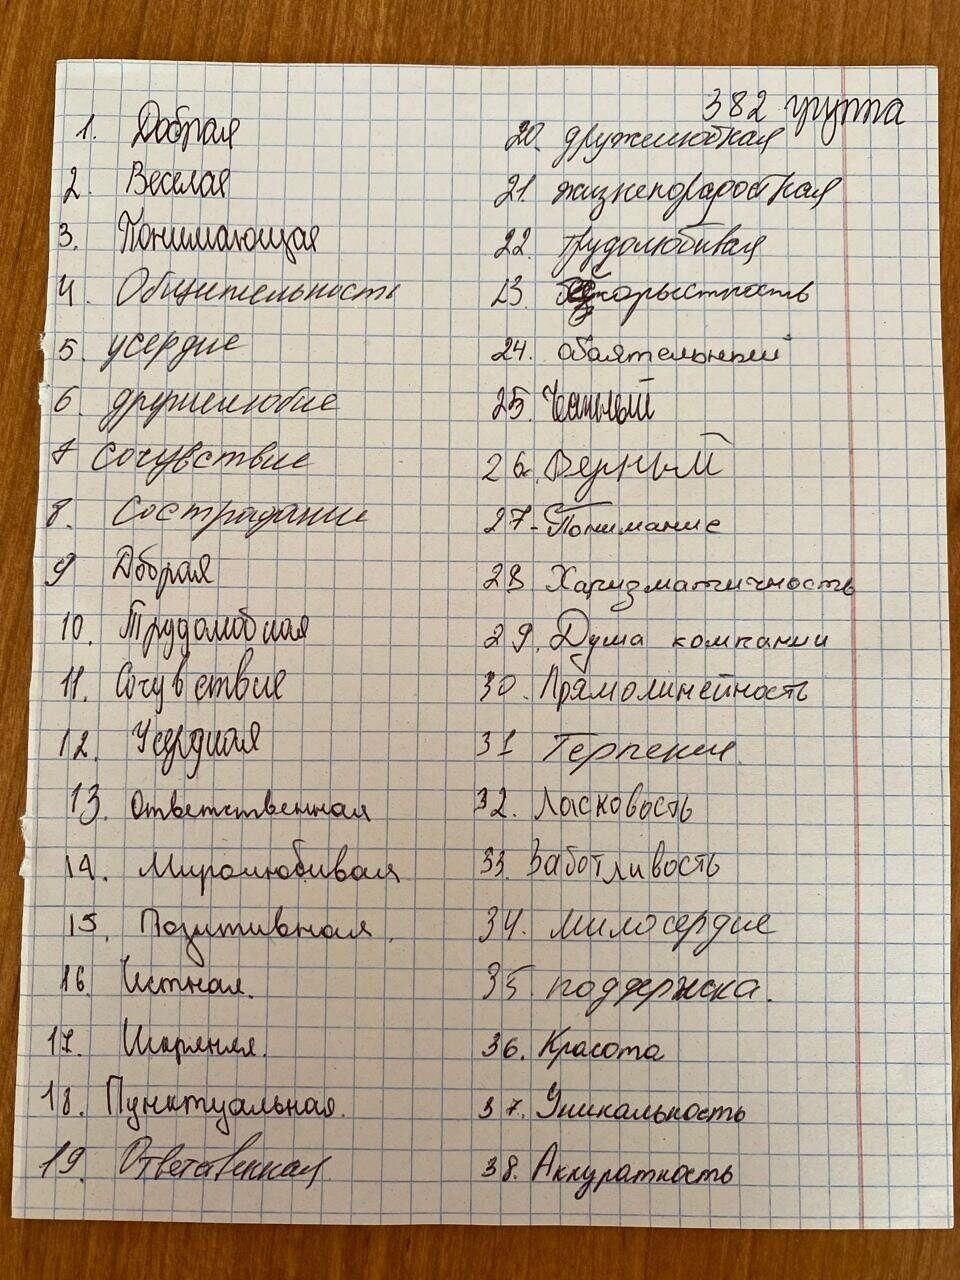 382 группа
1. Добрая
2. Веселая
3. Понимающая
4. Общительность
5. усердие
6. дружелюбие
7 Сочувствие
8. Сострадание
9 Дборая
10. Трудолюбная
11. Сочувствие
12. Усердная
13. Ответственная
14. Миролюбивая
15. Позитивная.
16. Честная.
17. Искрення.
18. Пунктуальная.
19. Ответсвенная
20. дружелюбная
21. жизнепорадостная
22. трудолюбивая
23 бескорыстность
24. обаятельный
25. Честный
26. Верный
27- Понимание
28 Харизматичность
29. Душа компании
30. Прямолинейность
31 Терпения.
32. Ласковость
33. Заботливость
34. милосердие
35. поддержка.
36. Красота
37. Уникальность
38. Аккуратность